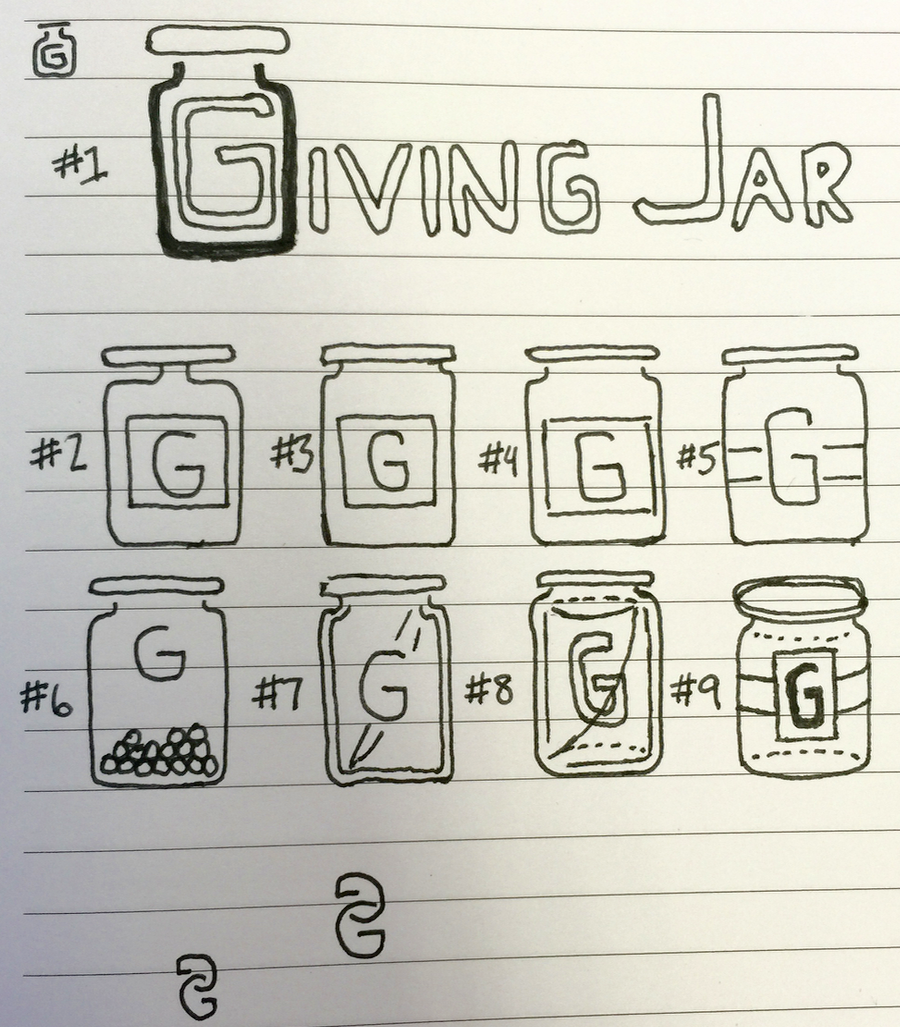 G
#1 GIVING JAR
#2 G #3 G #4 G #5 G
#6 G #7 G #8 G #9 G